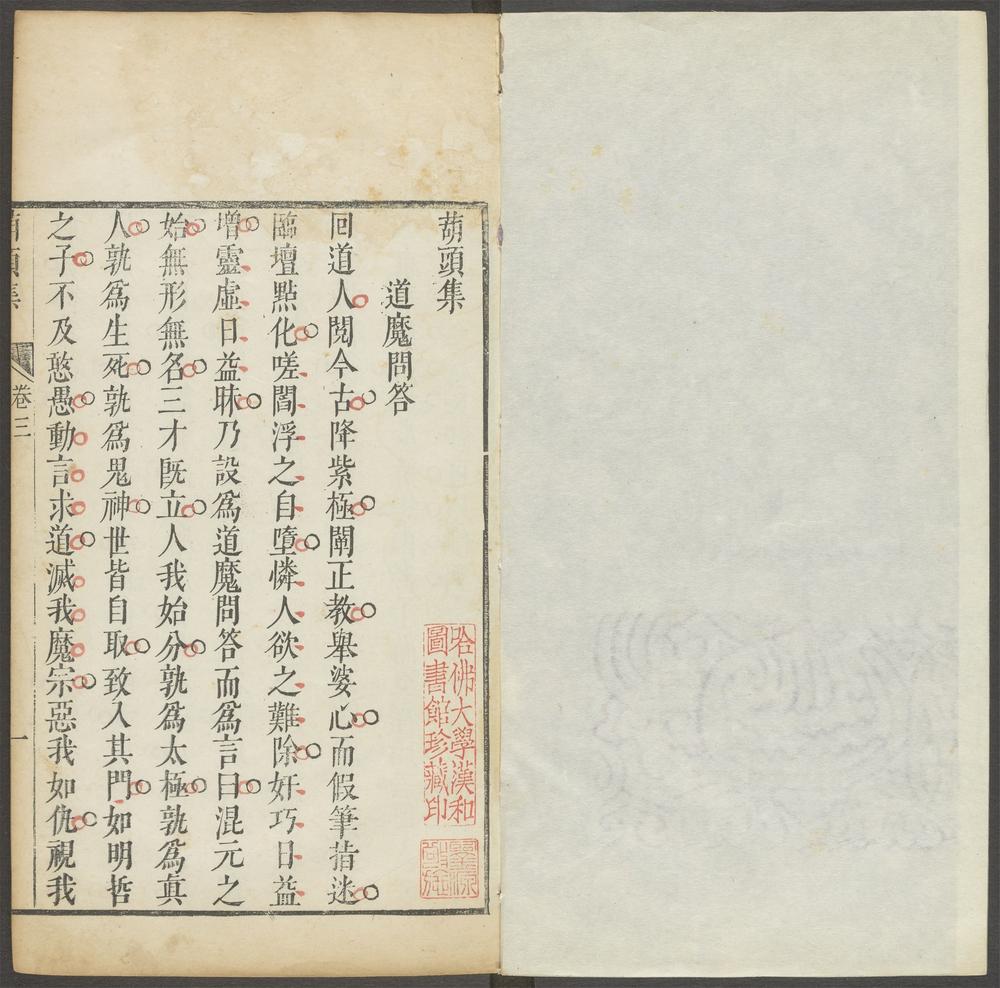 葫頭集
道魔問答
回道人閱今古降紫極闡正教舉婆心而假筆指迷
臨壇點化嗟閻浮之自墮憐人欲之難除奸巧日益
增靈虛日益昧乃設爲道魔問答而爲言曰混元之
始無形無名三才既立人我始分孰爲太極孰爲真
人孰爲生死孰爲鬼神世皆自取致入其門如明哲
之子不及憨愚動言求道滅我魔宗惡我如仇視我
卷三
一
哈佛大學漢和
圖書館珍藏印